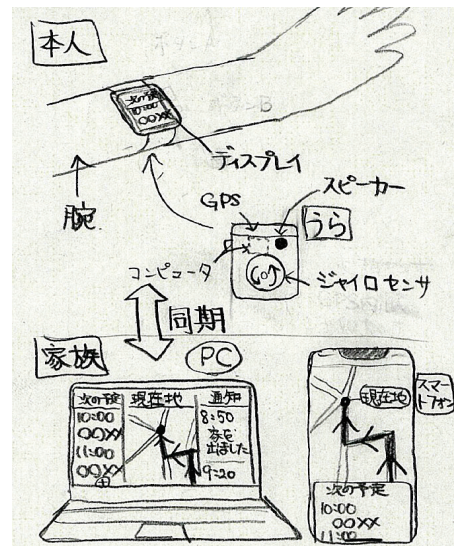 本人
次の予定
10:00
〇〇××
ディスプレイ
腕
GPS
スピーカー
うら
コンピュータ
ジャイロセンサ
同期
家族
PC
スマートフォン
次の予定
10:00
〇〇××
11:00
〇〇××
現在地
通知
8:50
家を
出ました
9:20
現在地
次の予定
10:00
〇〇××
11:00